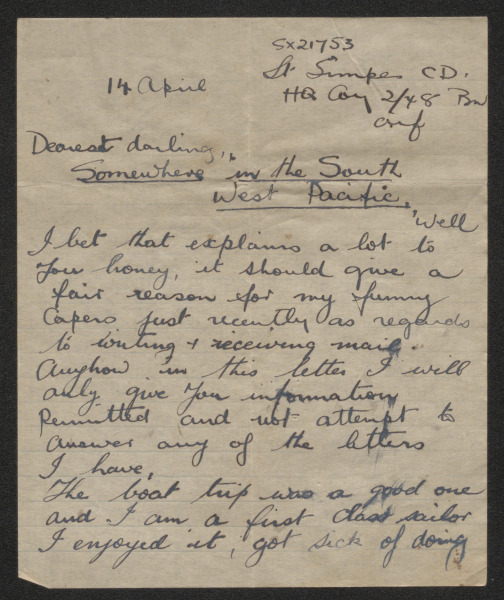 SX21753
14 April
Lt Simper CD.
HQ Coy 2/48 Bn
AIF
Dearest darling,
"Somewhere in the South
West Pacific."
Well
I bet that explains a lot to
you honey, it should give a
fair reason for my funny
capers just recently as regards
to writing + receiving mail.
Anyhow in this letter I will
only give you information
Permitted and not attempt to
answer any of the letters
I have,
The boat trip was a good one
and I am a first class sailor
I enjoyed it, got sick of doing